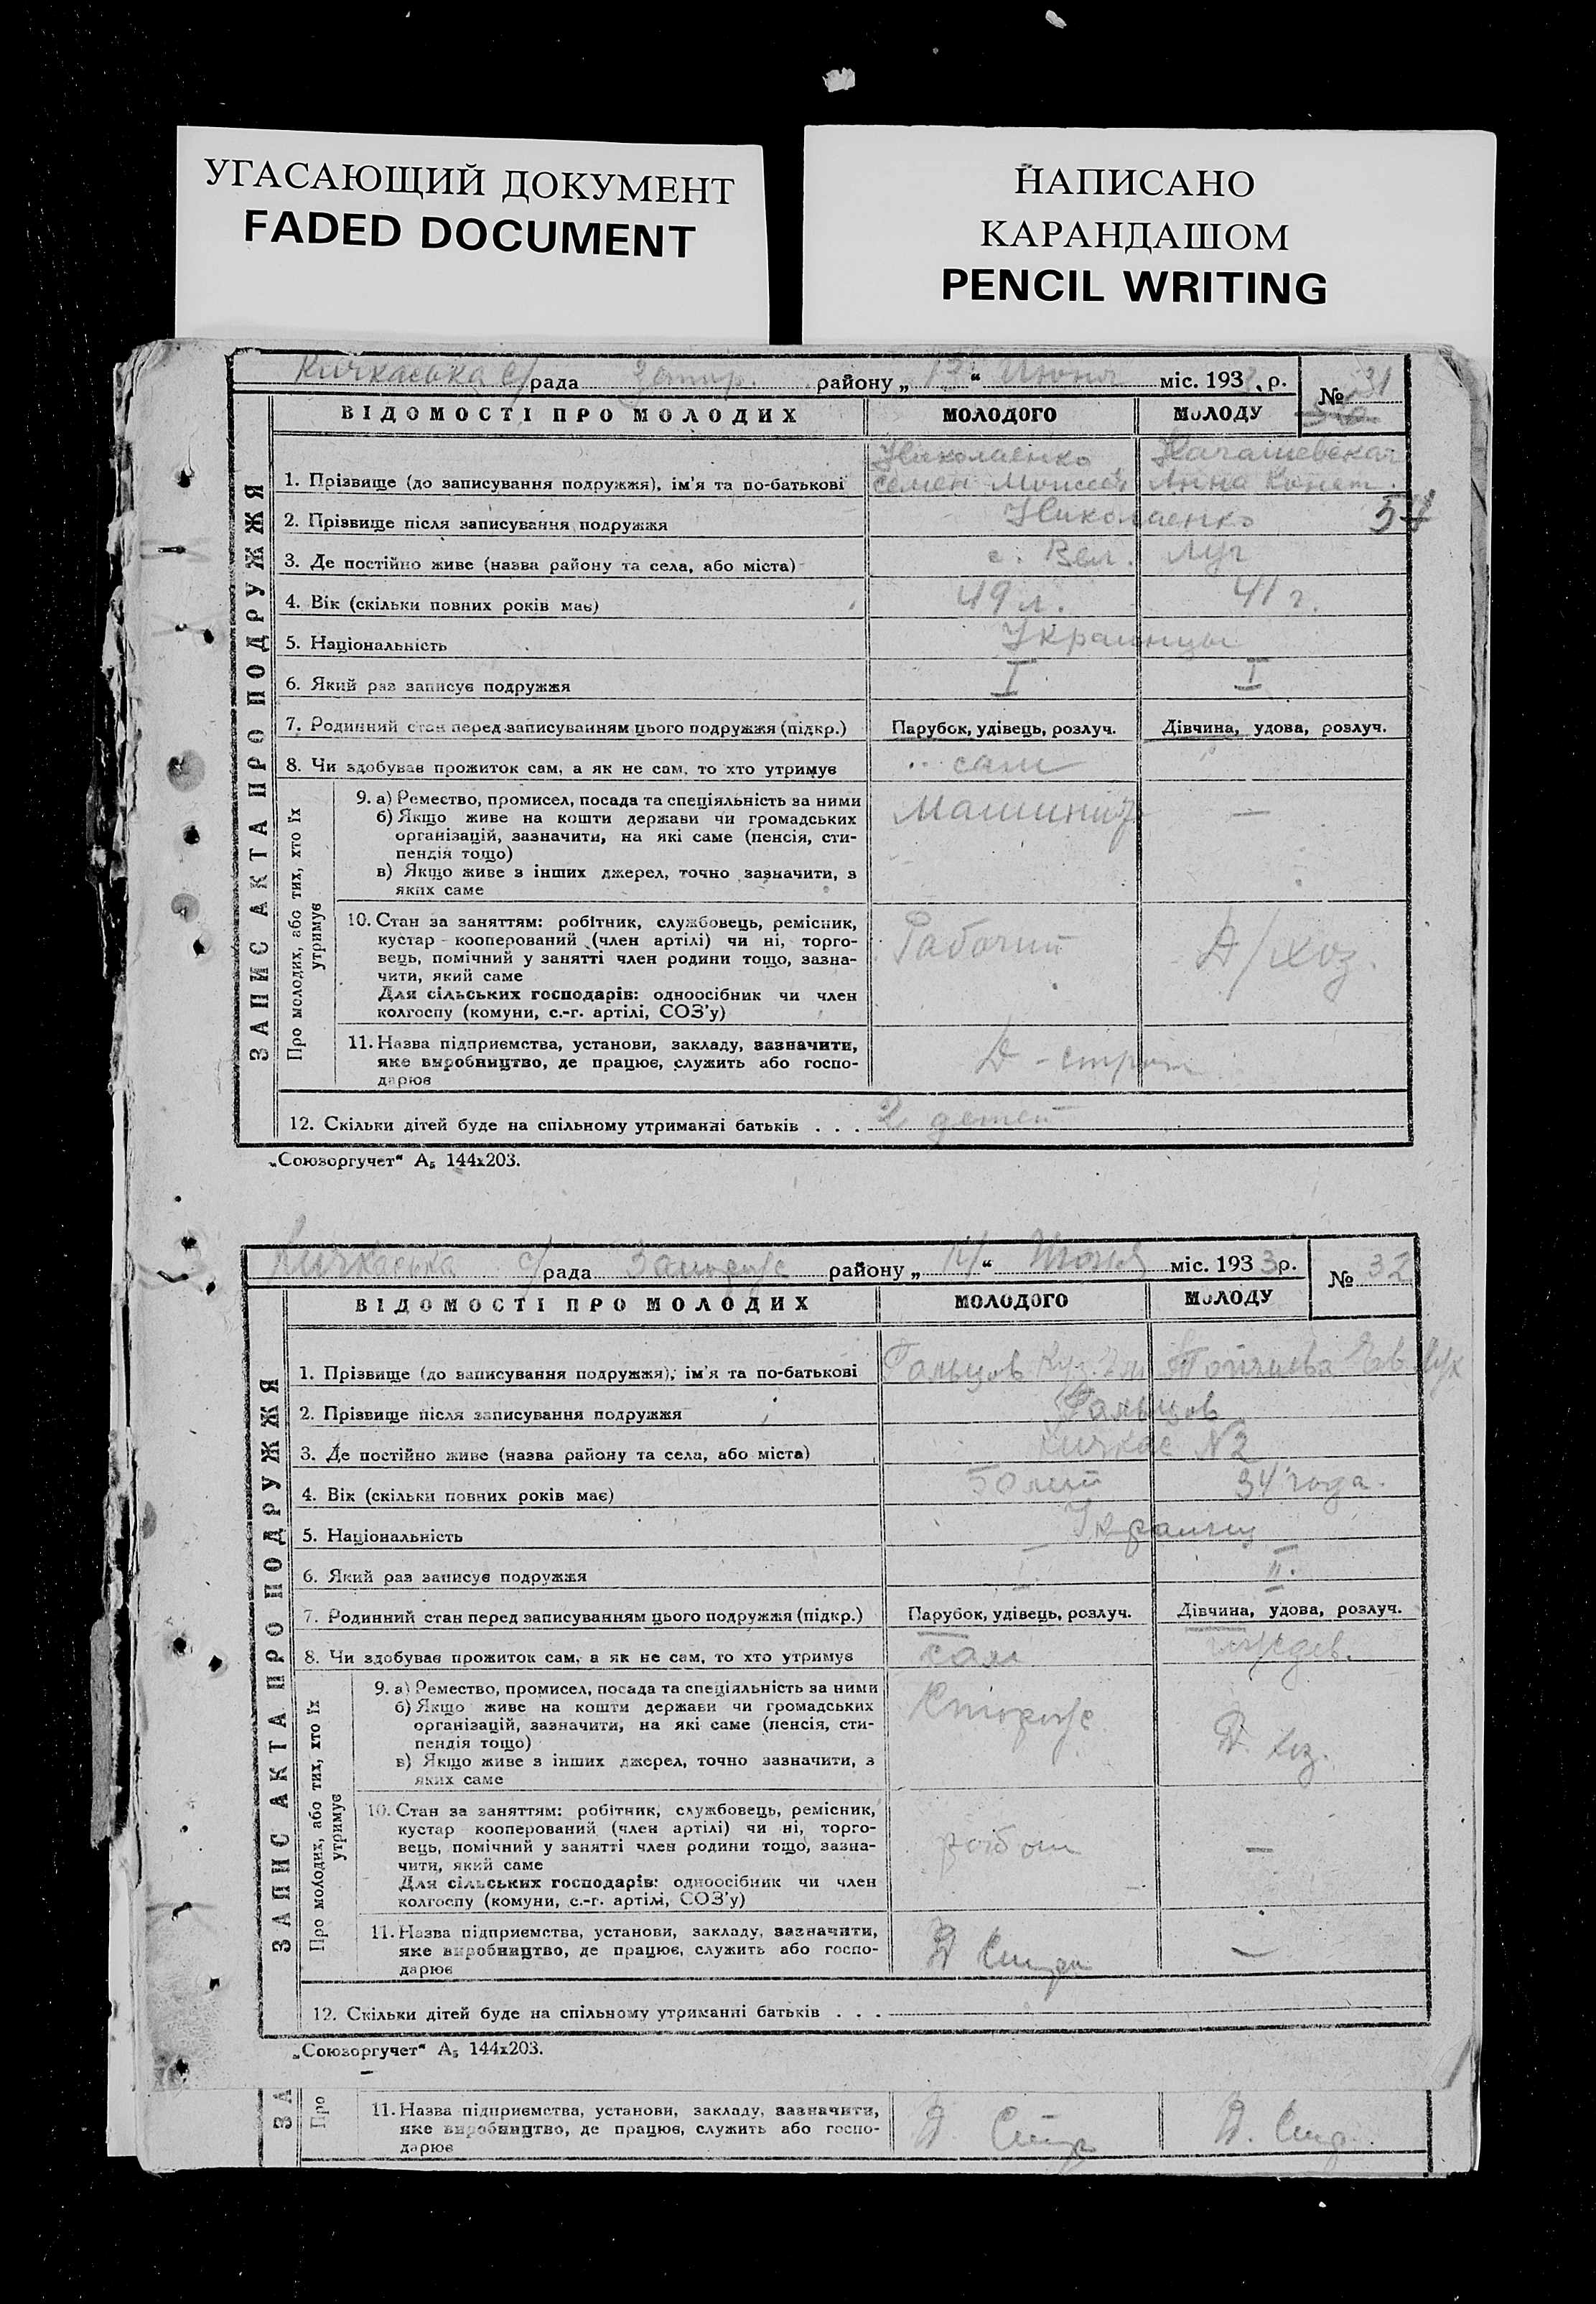 УГАСАЮЩИЙ ДОКУМЕНТ
FADED DOCUMENT
НАПИСАНО
КАРАНДАШОМ
PENCIL WRITING
Кичкаська с/рада Запор. району „13“ Июня міс. 1933 р. № 31
ЗАПИС АКТА ПРО ПОДРУЖЖЯ
ВІДОМОСТІ ПРО МОЛОДИХ МОЛОДОГО МОЛОДУ
1. Прізвище (до записування подружжя), ім'я та по-батькові Николаенко Семен Моисей Анна
2. Прізвище після записування подружжя Николаенко 54
3. Де постійно живе (назва району та села, або міста) с. Вел. Луг
4. Вік (скільки повних років має) 49 л. 41 г.
5. Національність Украинцы
6. Який раз записує подружжя I I
7. Родинний стан перед записуванням цього подружжя (підкр.) Парубок, удівець, розлуч. Дівчина, удова, розлуч.
8. Чи здобував прожиток сам, а як не сам, то хто утримує сам
Про молодих, або тих, хто їх утримує
9. а) Ремество, промисел, посада та спеціяльність за ними Машинист —
б) Якщо живе на кошти держави чи громадських
організацій, зазначити, на які саме (пенсія, сти-
пендія тощо)
в) Якщо живе з інших джерел, точно зазначити, з
яких саме
10. Стан за заняттям: робітник, службовець, ремісник, Рабочий Д/хоз.
кустар - кооперований (член артілі) чи ні, торго-
вець, помічний у занятті член родини тощо, зазна-
чити, який саме
Для сільських господарів: одноосібник чи член
колгоспу (комуни, с.-г. артілі, СОЗ'у)
11. Назва підприємства, установи, закладу, зазначити, Д-строй
яке виробництво, де працює, служить або госпо-
дарює
12. Скільки дітей буде на спільному утриманні батьків . . . 2 детей
„Союзоргучет“ А₅ 144х203.
Кичкаська с/рада Запорож району „14“ Июня міс. 1933 р. № 32
ЗАПИС АКТА ПРО ПОДРУЖЖЯ
ВІДОМОСТІ ПРО МОЛОДИХ МОЛОДОГО МОЛОДУ
1. Прізвище (до записування подружжя), ім'я та по-батькові Гальцов
2. Прізвище після записування подружжя Гальцов
3. Де постійно живе (назва району та села, або міста) Кичкас N2
4. Вік (скільки повних років має) 50 лет 34 года.
5. Національність Украинц
6. Який раз записує подружжя I II.
7. Родинний стан перед записуванням цього подружжя (підкр.) Парубок, удівець, розлуч. Дівчина, удова, розлуч.
8. Чи здобував прожиток сам, а як не сам, то хто утримує сам иждев.
Про молодих, або тих, хто їх утримує
9. а) Ремество, промисел, посада та спеціяльність за ними Сторож Д. хоз.
б) Якщо живе на кошти держави чи громадських
організацій, зазначити, на які саме (пенсія, сти-
пендія тощо)
в) Якщо живе з інших джерел, точно зазначити, з
яких саме
10. Стан за заняттям: робітник, службовець, ремісник, —
кустар кооперований (член артілі) чи ні, торго-
вець, помічний у занятті член родини тощо, зазна-
чити, який саме
Для сільських господарів: одноосібник чи член
колгоспу (комуни, с.-г. артілі, СОЗ'у)
11. Назва підприємства, установи, закладу, зазначити, Д Стро —
яке виробництво, де працює, служить або госпо-
дарює
12. Скільки дітей буде на спільному утриманні батьків . . .
„Союзоргучет“ А₅ 144х203.
ЗА
Про
11. Назва підприємства, установи, закладу, зазначити, Д. Стр Д. Стр.
яке виробництво, де працює, служить або госпо-
дарює